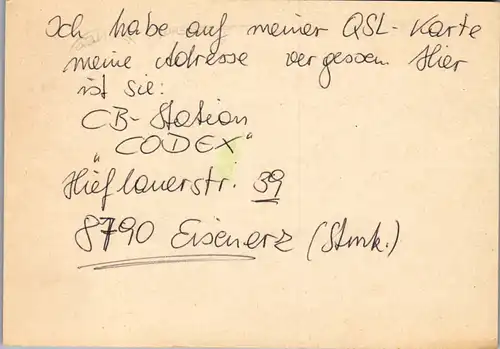 Ich habe auf meiner QSL-Karte
meine Adresse vergessen. Hier
ist sie:
CB-Station
"CODEX"
Hieflauerstr. 39
8790 Eisenerz (Stmk.)